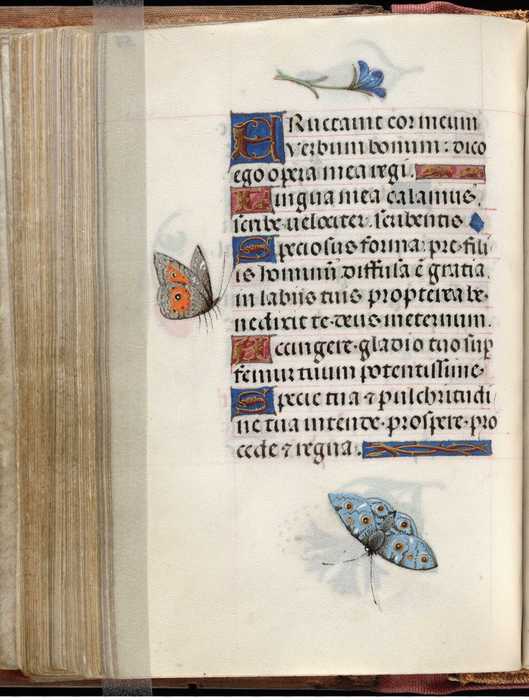 ERuctauit cor meum
verbum bonum: dico
ego opera mea regi.
Lingua mea calamus,
scribe uelociter scribentis
Speciosus forma pre fili
is hominū diffusa ē gratia
in labiis tuis propterea be-
nedixit te deus in eternum.
Accingere gladio tuo sup
femur tuum potentissime.
Specie tua ⁊ pulchritudi
ne tua intende prospere pro
cede ⁊ regna.